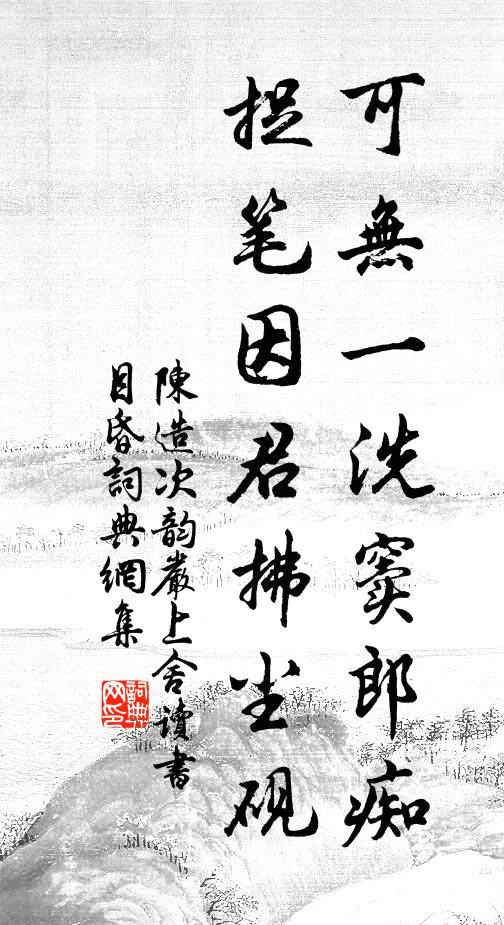 可無一洗窦郎痴
捉笔因君拂尘砚
陳造次韵嚴上舍讀書
目昏詞典網集
詞典
网印